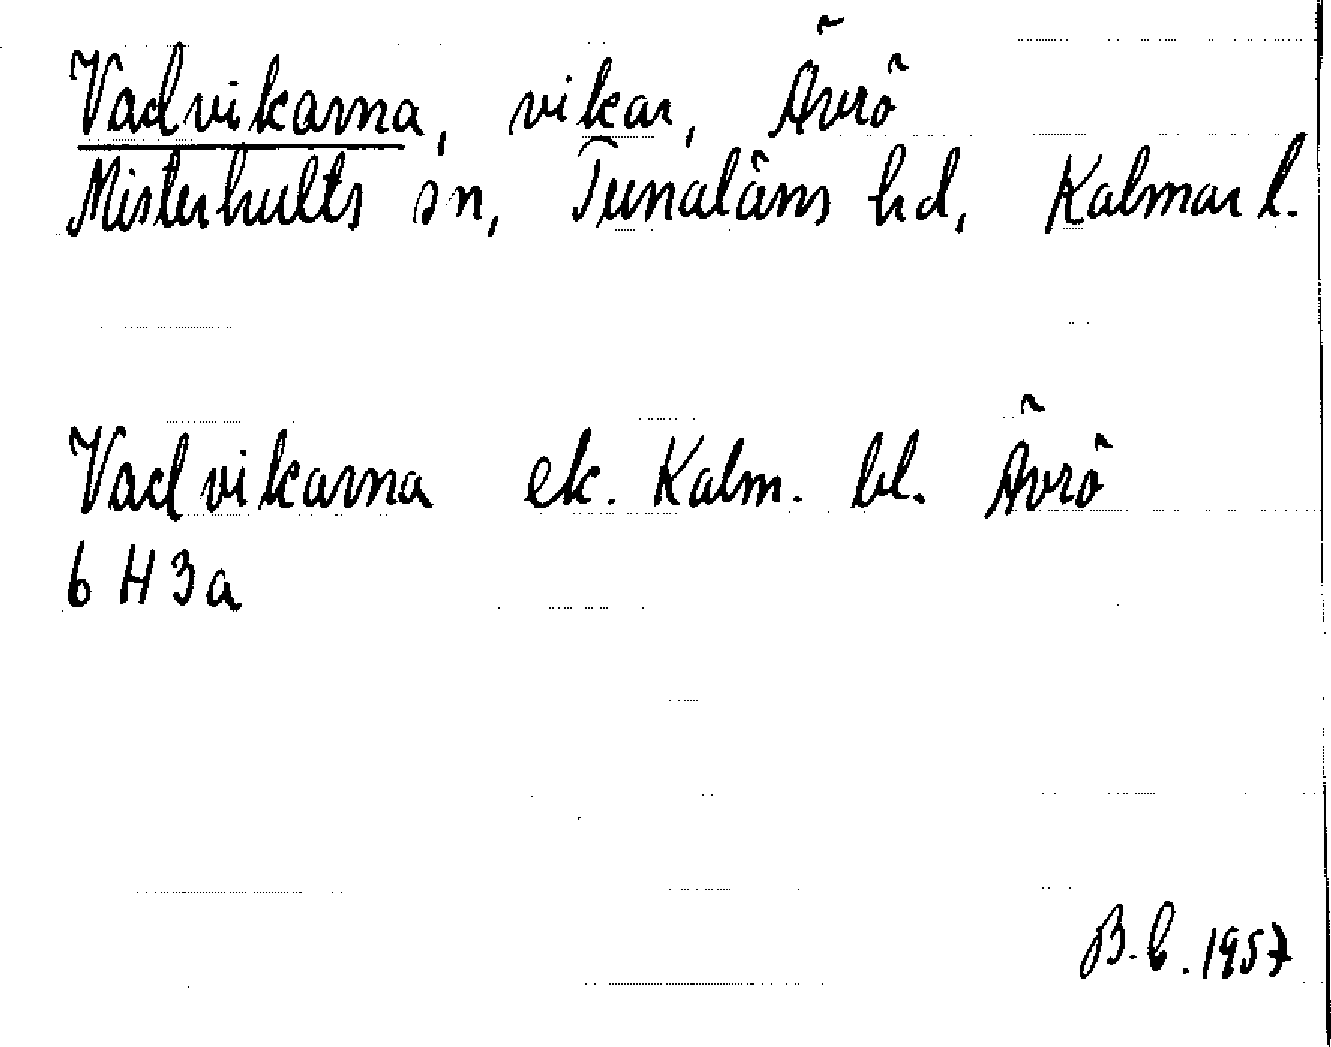 Vadvikarna, vikar, Ävrö
Misterhults sn, Tunaläns hd, Kalmar l.
Vadvikarna ek. Kalm. bl. Ävrö
6 H 3 a
B.b. 1957